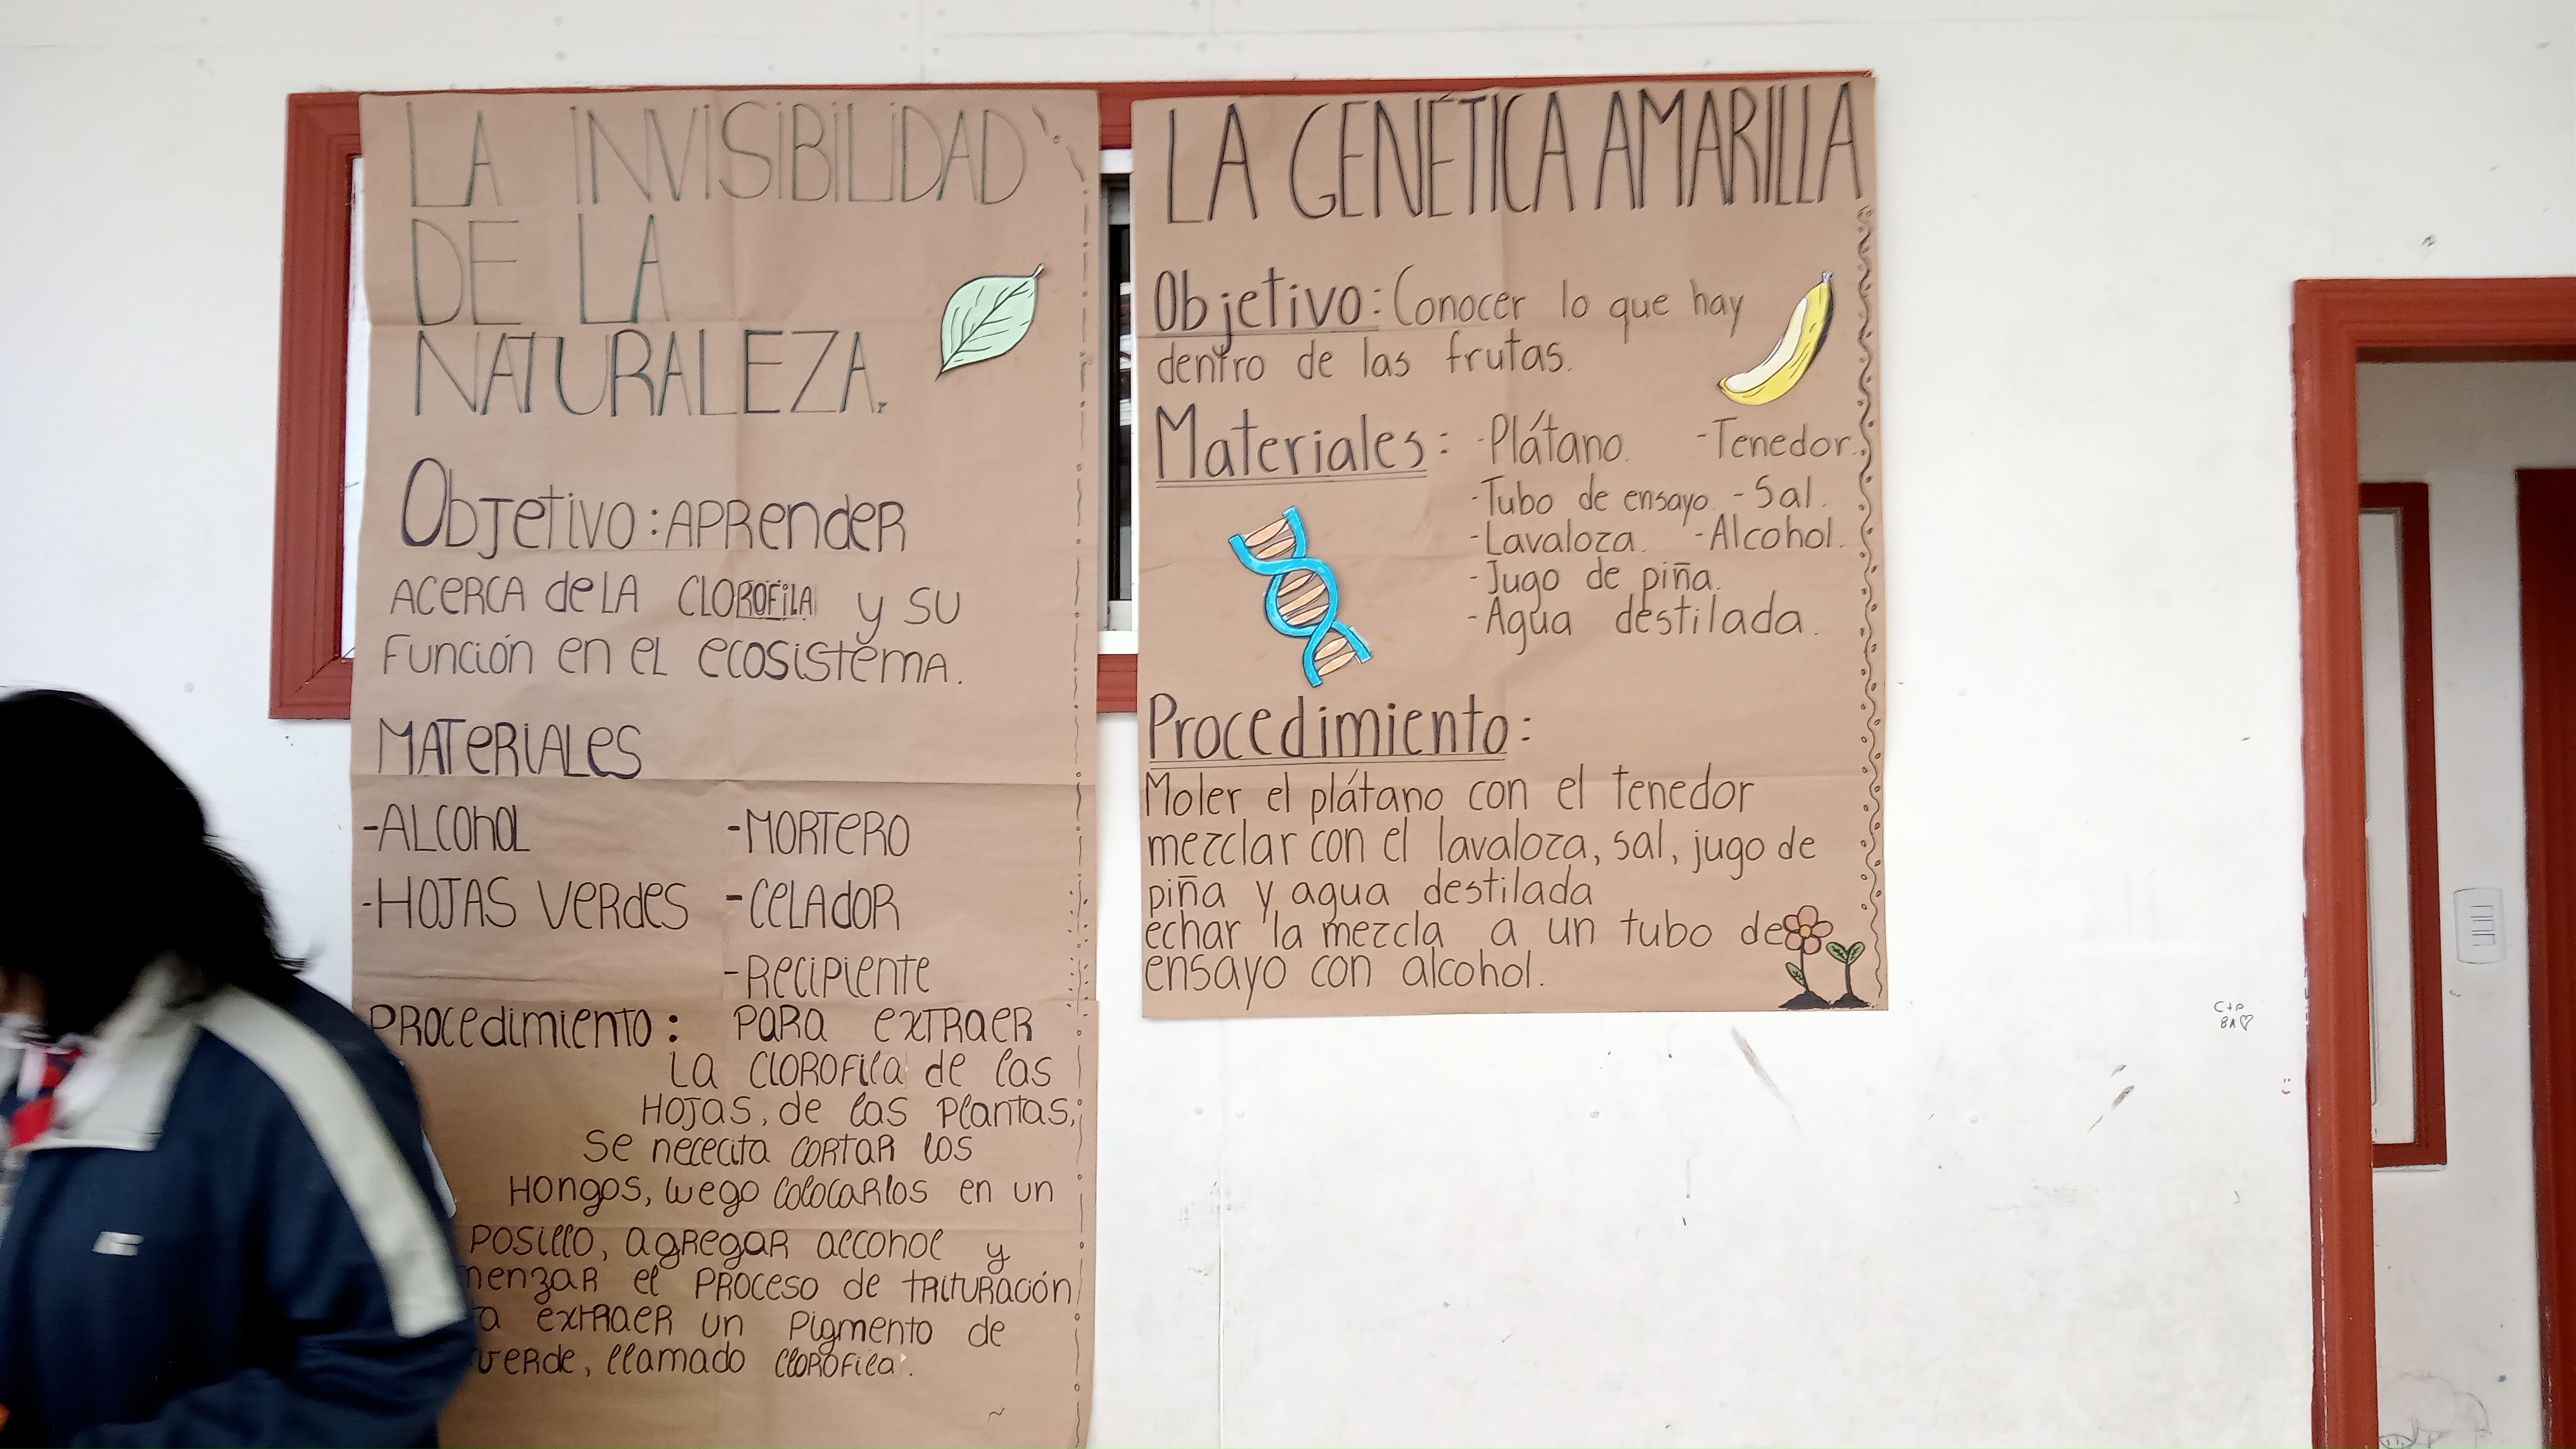 LA INVISIBILIDAD
DE LA
NATURALEZA.
Objetivo: APRender
ACERCA de LA CLOROFiLA y SU
Función en el ecosistema.
MATERIALES
-ALCOhOL
-HOJAS VERdES
-MORTERO
-CELAdOR
-RECIPIENTE
PROCedimiento: PARA exTRAeR
La CLOROFila de las
HOJAS, de las Plantas,
Se nececita CORTAR los
HONGOS, luego colocarlos en un
POSillo, agregar alcohol y
el PROCeso de TRITURación
exTRAeR un Pigmento de
verde, llamado CloROFila.
LA GENÉTICA AMARILLA
Objetivo: Conocer lo que hay
dentro de las frutas.
Materiales: -Plátano. -Tenedor.
-Tubo de ensayo. -Sal.
-Lavaloza. -Alcohol.
-Jugo de piña.
-Agua destilada.
Procedimiento:
Moler el plátano con el tenedor
mezclar con el lavaloza, sal, jugo de
piña y agua destilada
echar la mezcla a un tubo de
ensayo con alcohol.